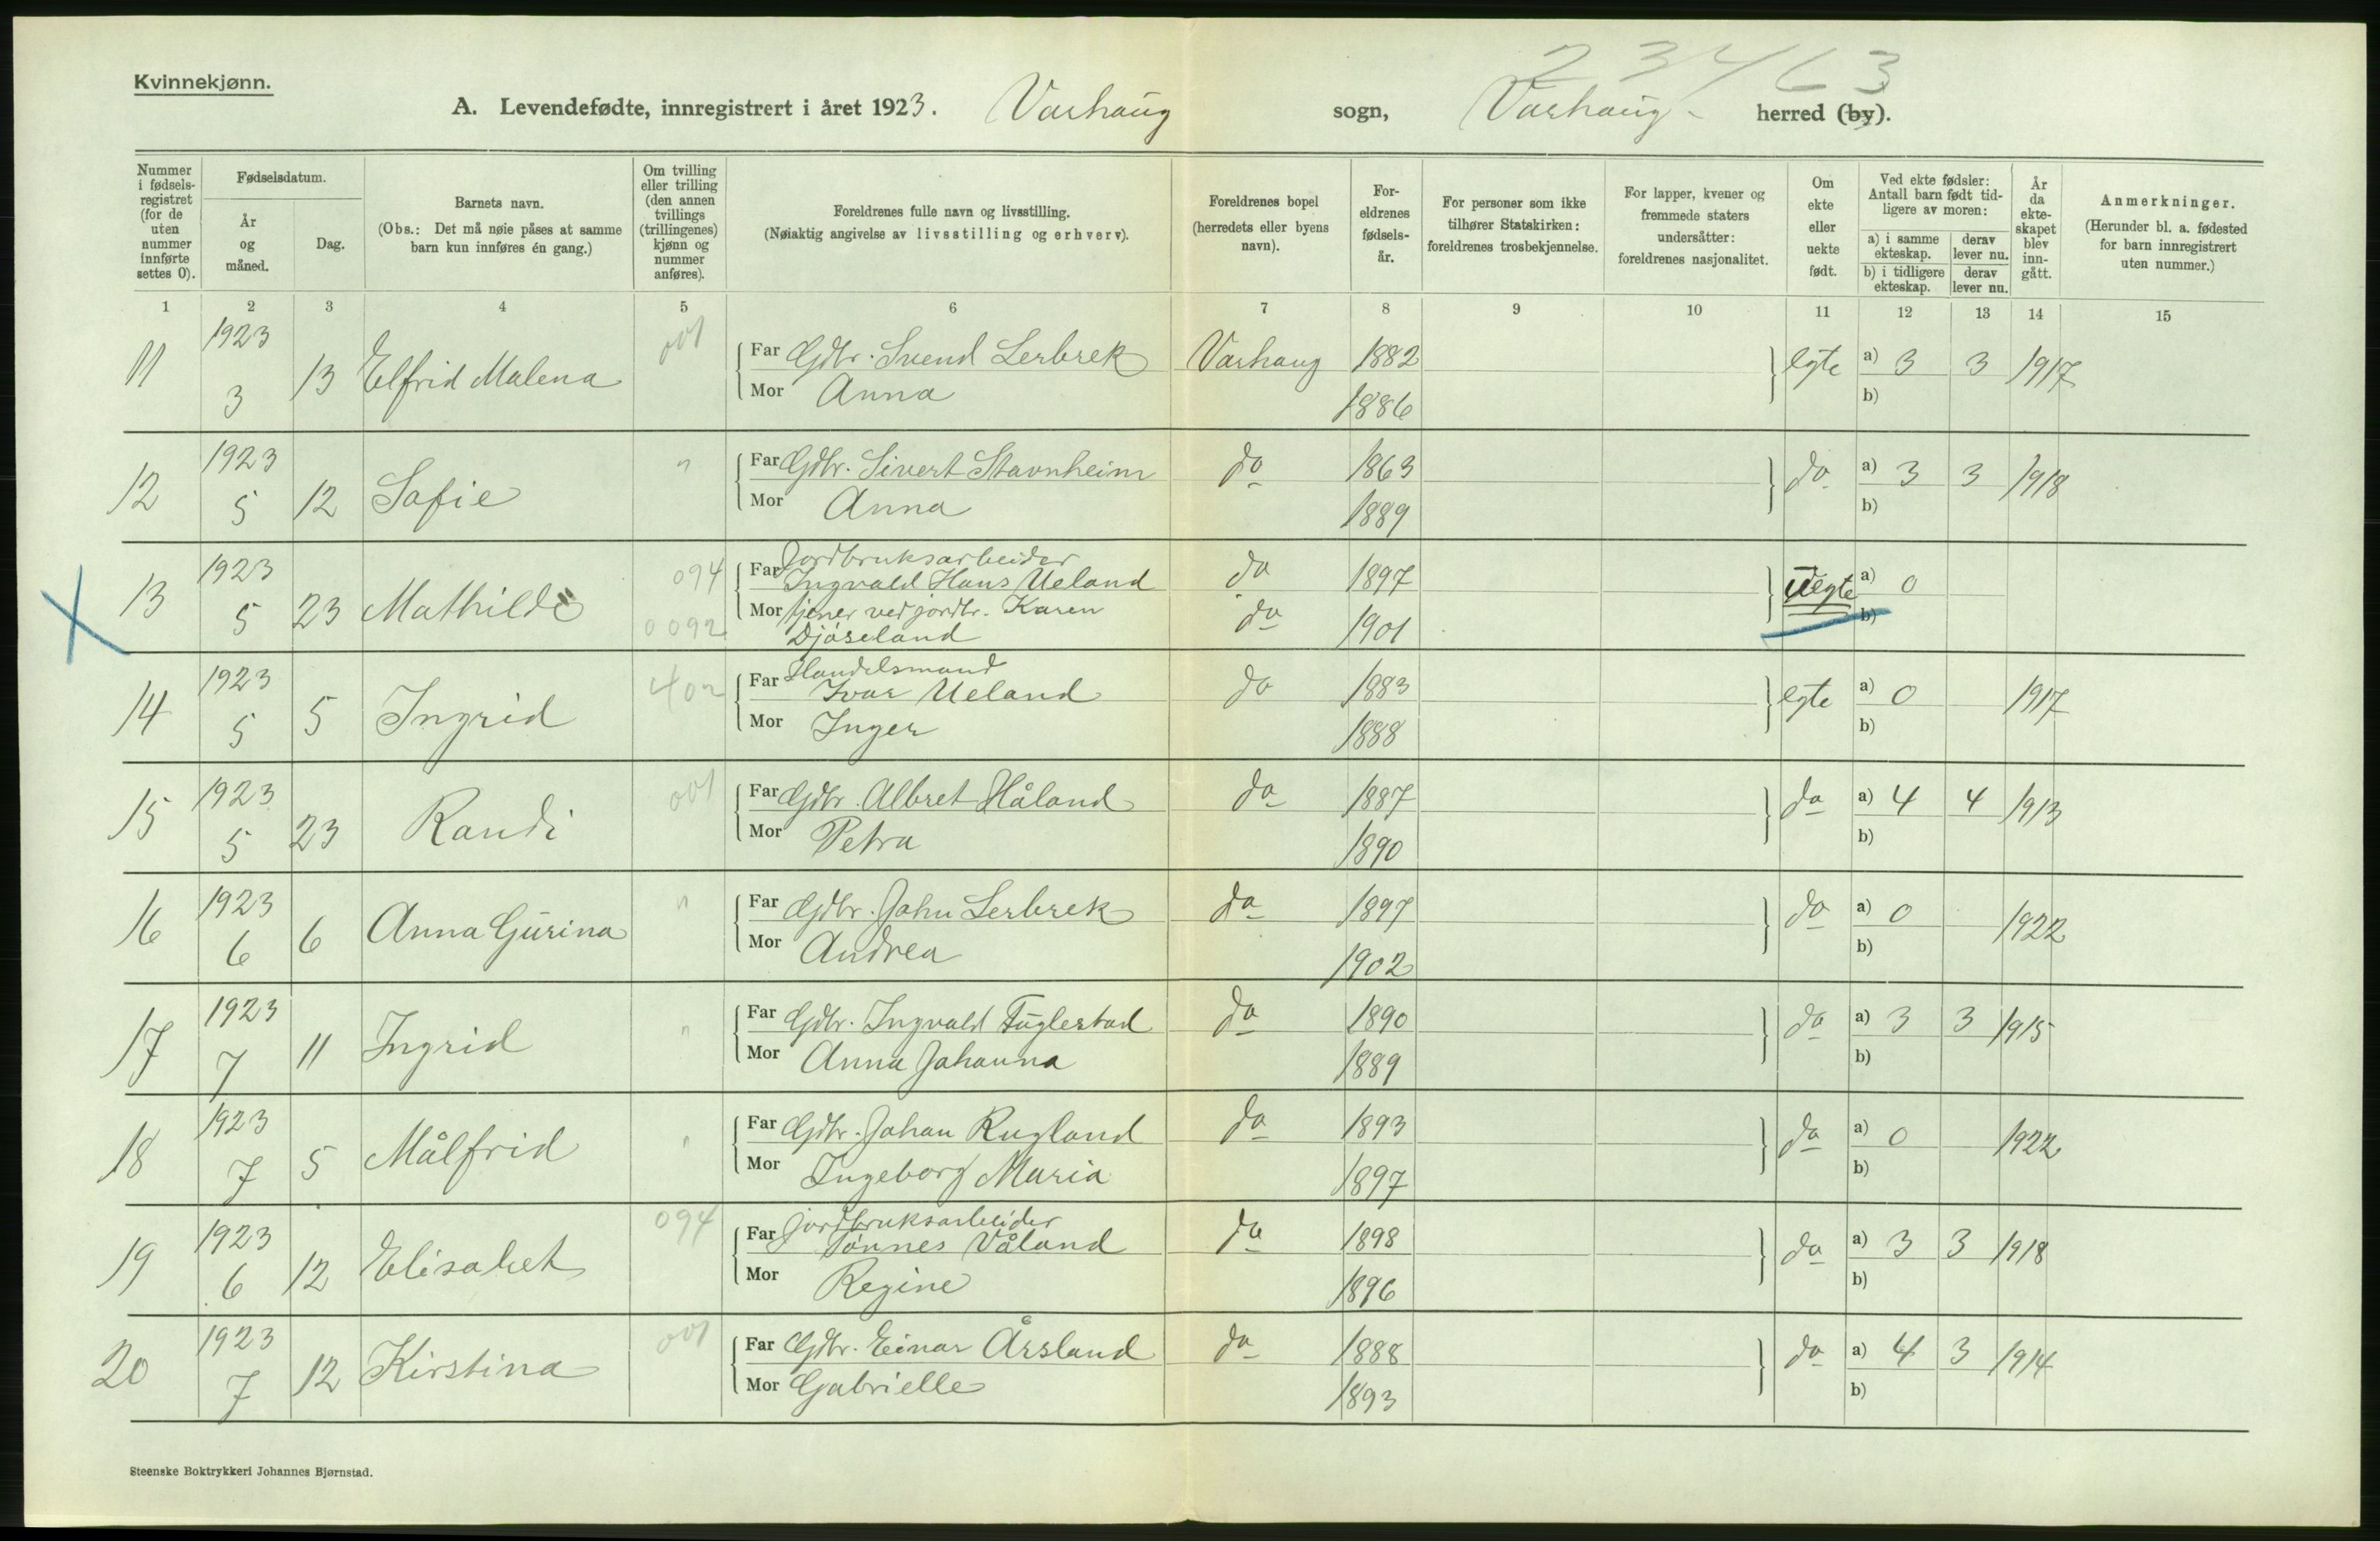 2 3 4 6 3
Kvinnekjønn.
A. Levendefødte, innregistrert i året 1923. Varhaug sogn, Varhaug - herred (by).
Nummer i fødsels-registret (for de uten nummer innførte settes 0).
Fødselsdatum.
År og måned.
Dag.
Barnets navn.
(Obs.: Det må nøie påses at samme barn kun innføres én gang.)
Om tvilling eller trilling (den annen tvillings (trillingenes) kjønn og nummer anføres).
Foreldrenes fulle navn og livsstilling.
(Nøiaktig angivelse av livsstilling og erhverv).
Foreldrenes bopel (herredets eller byens navn).
For-eldrenes fødsels-år.
For personer som ikke tilhører Statskirken: foreldrenes trosbekjennelse.
For lapper, kvener og fremmede staters undersåtter: foreldrenes nasjonalitet.
Om ekte eller uekte født.
Ved ekte fødsler: Antall barn født tid-ligere av moren:
a) i samme ekteskap. derav lever nu.
b) i tidligere ekteskap. derav lever nu.
År da ekte-skapet blev inn-gått.
Anmerkninger.
(Herunder bl. a. fødested for barn innregistrert uten nummer.)
1 2 3 4 5 6 7 8 9 10 11 12 13 14 15
11 1923 3 13 Elfrid Malena 001 Far Gdbr. Svend Lerbrek Varhaug 1882 egte a) 3 3 1917
Mor Anna 1886 b)
12 1923 5 12 Sofie " Far Gdbr. Sivert Stavnheim do 1863 do a) 3 3 1918
Mor Anna 1889 b)
13 1923 5 23 Mathilde 094 Far Jordbruksarbeider
Ingvald Hans Ueland do 1897 uegte a) 0
0092 Mor tjener ved jordbr. Karen
Djøseland do 1901 b)
14 1923 5 5 Ingrid 402 Far Handelsmand
Ivar Ueland do 1883 egte a) 0 1917
Mor Inger 1888 b)
15 1923 5 23 Randi 001 Far Gdbr. Albret Håland do 1887 do a) 4 4 1913
Mor Petra 1890 b)
16 1923 6 6 Anna Gurina " Far Gdbr. John Lerbrek do 1897 do a) 0 1922
Mor Andrea 1902 b)
17 1923 7 11 Ingrid " Far Gdbr. Ingvald Fuglestad do 1890 do a) 3 3 1915
Mor Anna Johanna 1889 b)
18 1923 7 5 Målfrid " Far Gdbr. Johan Rugland do 1893 do a) 0 1922
Mor Ingeborg Maria 1897 b)
19 1923 6 12 Elisabet 094 Far jordbruksarbeider
Tønnes Våland do 1898 do a) 3 3 1918
Mor Regine 1896 b)
20 1923 7 12 Kirstina 001 Far Gdbr. Einar Årsland do 1888 do a) 4 3 1914
Mor Gabrielle 1893 b)
Steenske Boktrykkeri Johannes Bjørnstad.